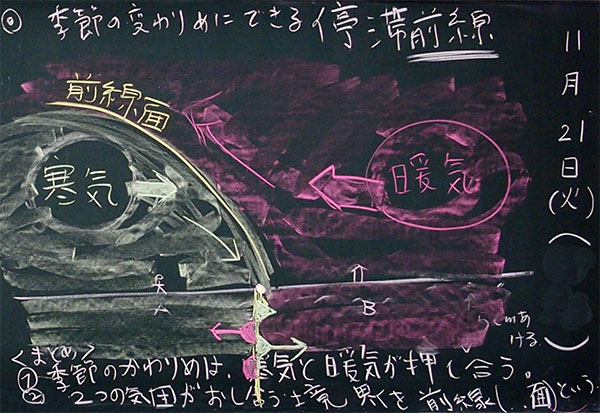 ◎ 季節の変わりめにできる停滞前線
11月21日(火)
前線面
寒気
暖気
B
ける
<まとめ>
① 季節のかわりめは、寒気と暖気が押し合う。
② 2つの気団がおし合う境
前線
面という